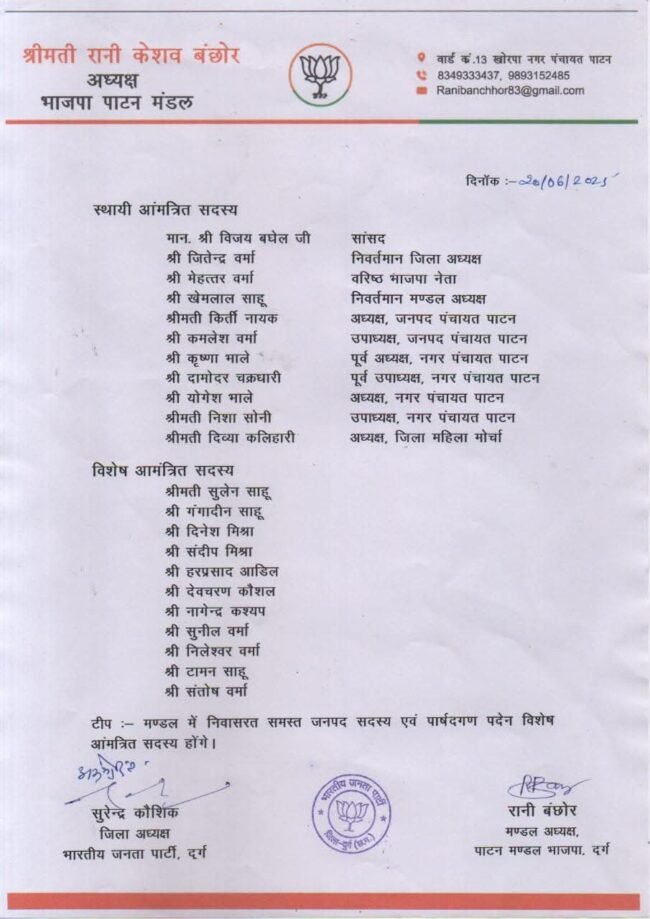 श्रीमती रानी केशव बंछोर
अध्यक्ष
भाजपा पाटन मंडल
वार्ड कं.13 खोरपा नगर पंचायत पाटन
8349333437, 9893152485
Ranibanchhor83@gmail.com
दिनॉक :– 20/06/2025
स्थायी आंमत्रित सदस्य
मान. श्री विजय बघेल जी सांसद
श्री जितेन्द्र वर्मा निवर्तमान जिला अध्यक्ष
श्री मेहत्तर वर्मा वरिष्ठ भाजपा नेता
श्री खेमलाल साहू निवर्तमान मण्डल अध्यक्ष
श्रीमती किर्ती नायक अध्यक्ष, जनपद पंचायत पाटन
श्री कमलेश वर्मा उपाध्यक्ष, जनपद पंचायत पाटन
श्री कृष्णा भाले पूर्व अध्यक्ष, नगर पंचायत पाटन
श्री दामोदर चक्रधारी पूर्व उपाध्यक्ष, नगर पंचायत पाटन
श्री योगेश भाले अध्यक्ष, नगर पंचायत पाटन
श्रीमती निशा सोनी उपाध्यक्ष, नगर पंचायत पाटन
श्रीमती दिव्या कलिहारी अध्यक्ष, जिला महिला मोर्चा
विशेष आमंत्रित सदस्य
श्रीमती सुलेन साहू
श्री गंगादीन साहू
श्री दिनेश मिश्रा
श्री संदीप मिश्रा
श्री हरप्रसाद आडिल
श्री देवचरण कौशल
श्री नागेन्द्र कश्यप
श्री सुनील वर्मा
श्री निलेश्वर वर्मा
श्री टामन साहू
श्री संतोष वर्मा
टीप :– मण्डल में निवासरत समस्त जनपद सदस्य एवं पार्षदगण पदेन विशेष
आंमत्रित सदस्य होंगे।
सुरेन्द्र कौशिक
जिला अध्यक्ष
भारतीय जनता पार्टी, दुर्ग
भारतीय जनता पार्टी
जिला-दुर्ग (छ.ग.)
रानी बंछोर
मण्डल अध्यक्ष,
पाटन मण्डल भाजपा. दुर्ग